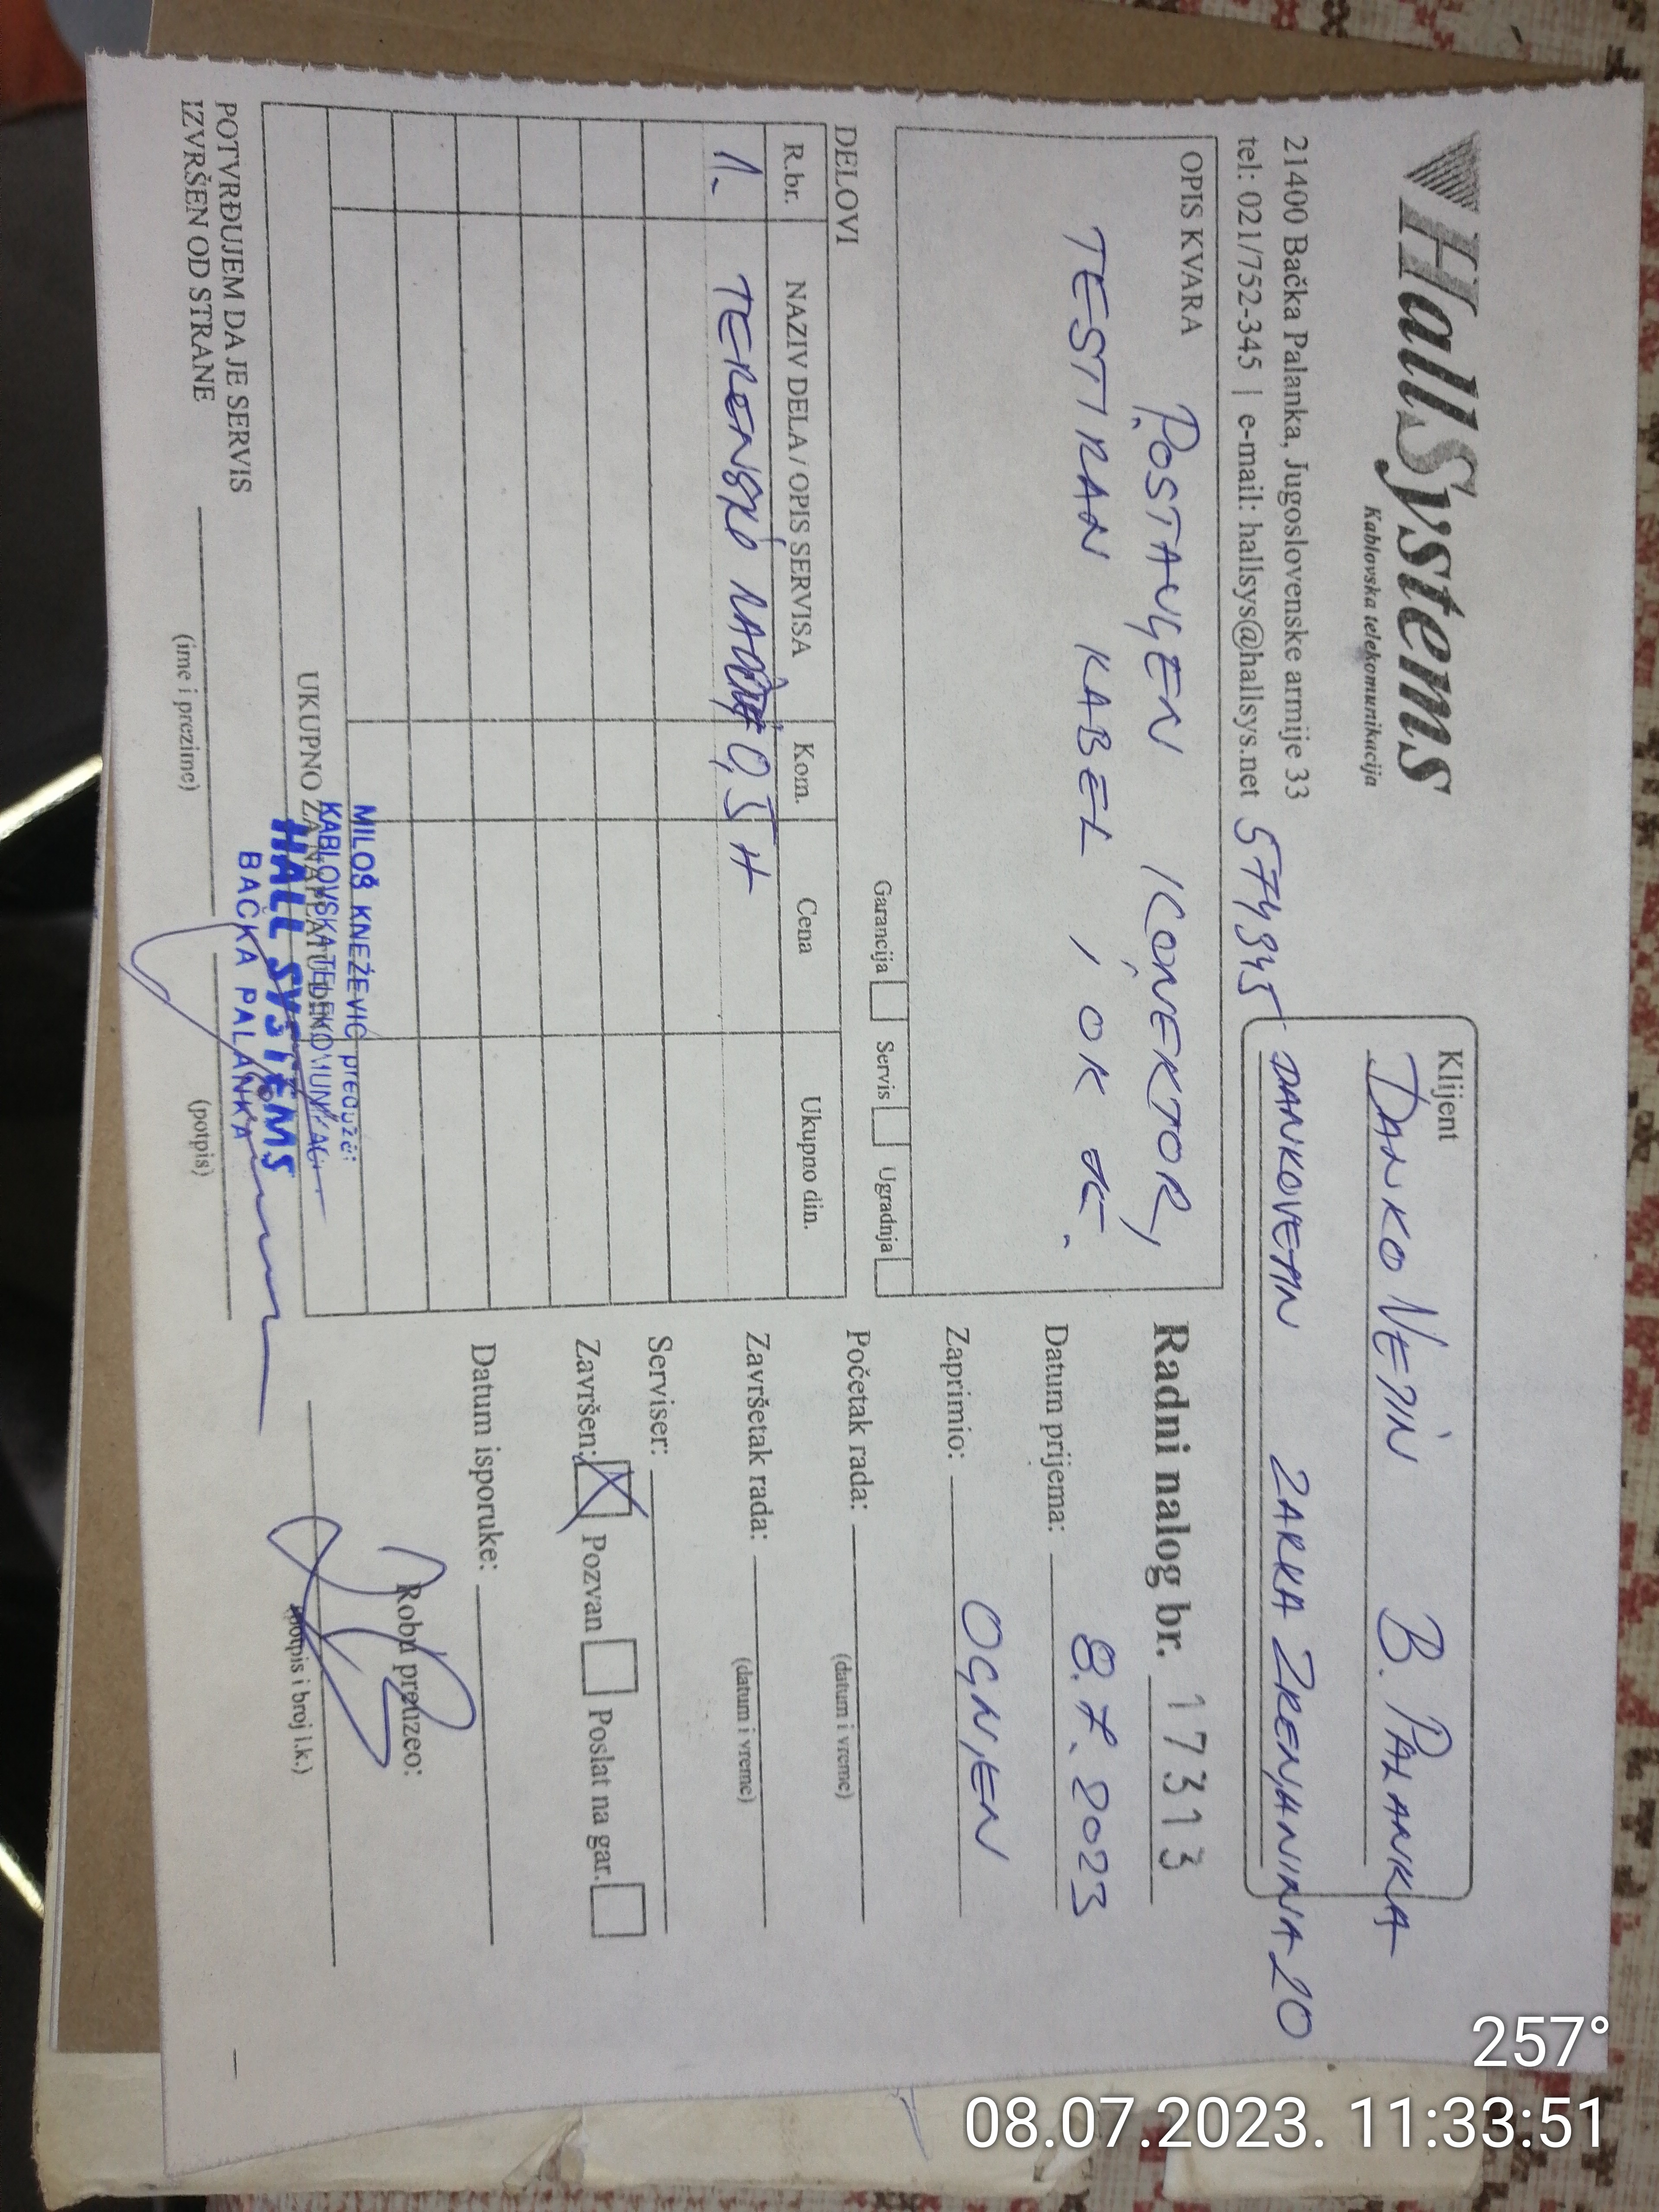 HallSystems
Kablovska telekomunikacija
21400 Bačka Palanka, Jugoslovenske armije 33
tel: 021/752-345 | e-mail: hallsys@hallsys.net
Klijent
DANKO B. PALANKA
ŽARKA ZRENJANINA 20
OPIS KVARA
POSTAVLJEN KONEKTOR,
TESTIRAN KABEL, OK
Garancija Servis Ugradnja
Radni nalog br. 17313
Datum prijema: 8.7.2023
Zaprimio: OGNJEN
Početak rada:
(datum i vreme)
Završetak rada:
(datum i vreme)
Serviser:
Završen: Pozvan Poslat na gar.
Datum isporuke:
Robu preuzeo:
(potpis i broj l.k.)
DELOVI
R.br. NAZIV DELA / OPIS SERVISA Kom. Cena Ukupno din.
1. TERENSKI 0,5 H
UKUPNO ZA NAPLATU DIN
MILOŠ KNEŽEVIĆ preduzć:
KABLOVSKA TELEKOMUNIKAC
HALL SYSTEMS
BAČKA PALANKA
POTVRĐUJEM DA JE SERVIS
IZVRŠEN OD STRANE
(ime i prezime) (potpis)
257°
08.07.2023. 11:33:51